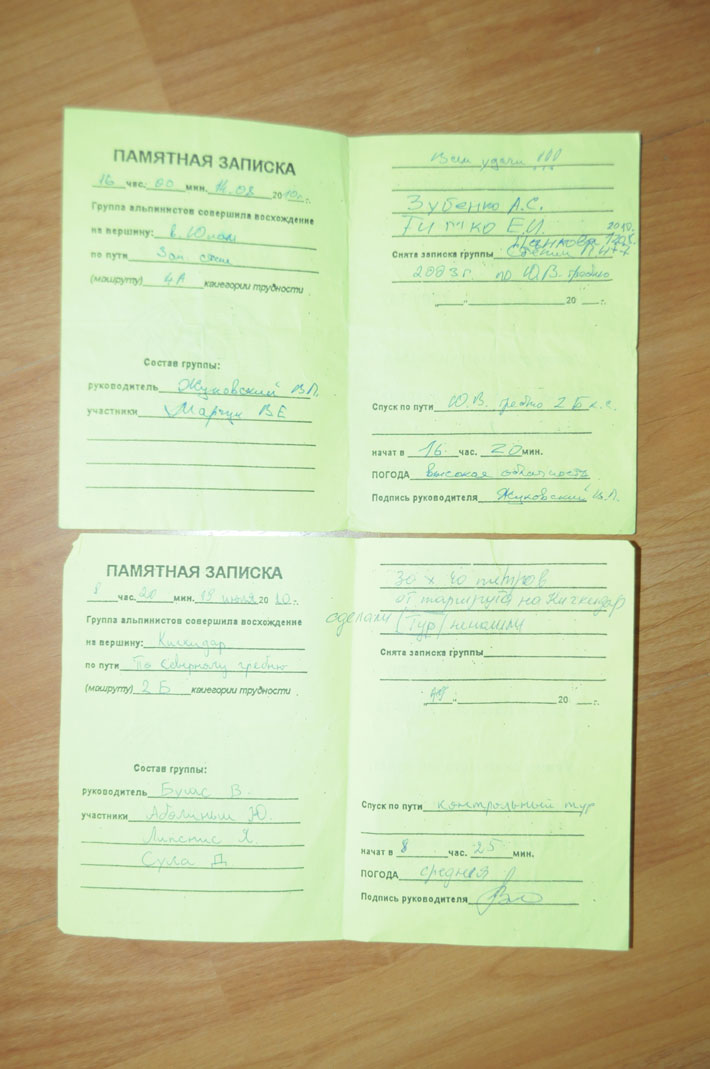 ПАМЯТНАЯ ЗАПИСКА
16 час. 00 мин. 14.08 2010 г.
Группа альпинистов совершила восхождение
на вершину: в. Юном
по пути Зап. стене
(маршруту) 4А категории трудности
Состав группы:
руководитель Жуковский В.П.
участники Марчук В Е
Всем удачи !!!
Зубенко А.С.
Титко Е.И. 2010.
Панкова
Снята записка группы
2003 г. по Ю.В. гребню
20 г.
Спуск по пути Ю.В. гребню 2 Б к.с.
начат в 16 час. 20 мин.
ПОГОДА высокая облачность
Подпись руководителя Жуковский В.П.
ПАМЯТНАЯ ЗАПИСКА
8 час. 20 мин. 19 июля 2010 г.
Группа альпинистов совершила восхождение
на вершину: Кичкидар
по пути По северному гребню
(маршруту) 2 Б категории трудности
Состав группы:
руководитель Бугас В.
участники Аболиньш Ю.
Липстис Я.
Сула Д
За х. 40 метров
от маршрута на Кичкидар
сделали (Тур)
Снята записка группы
20 г.
Спуск по пути контрольный тур
начат в 8 час. 25 мин.
ПОГОДА средняя
Подпись руководителя